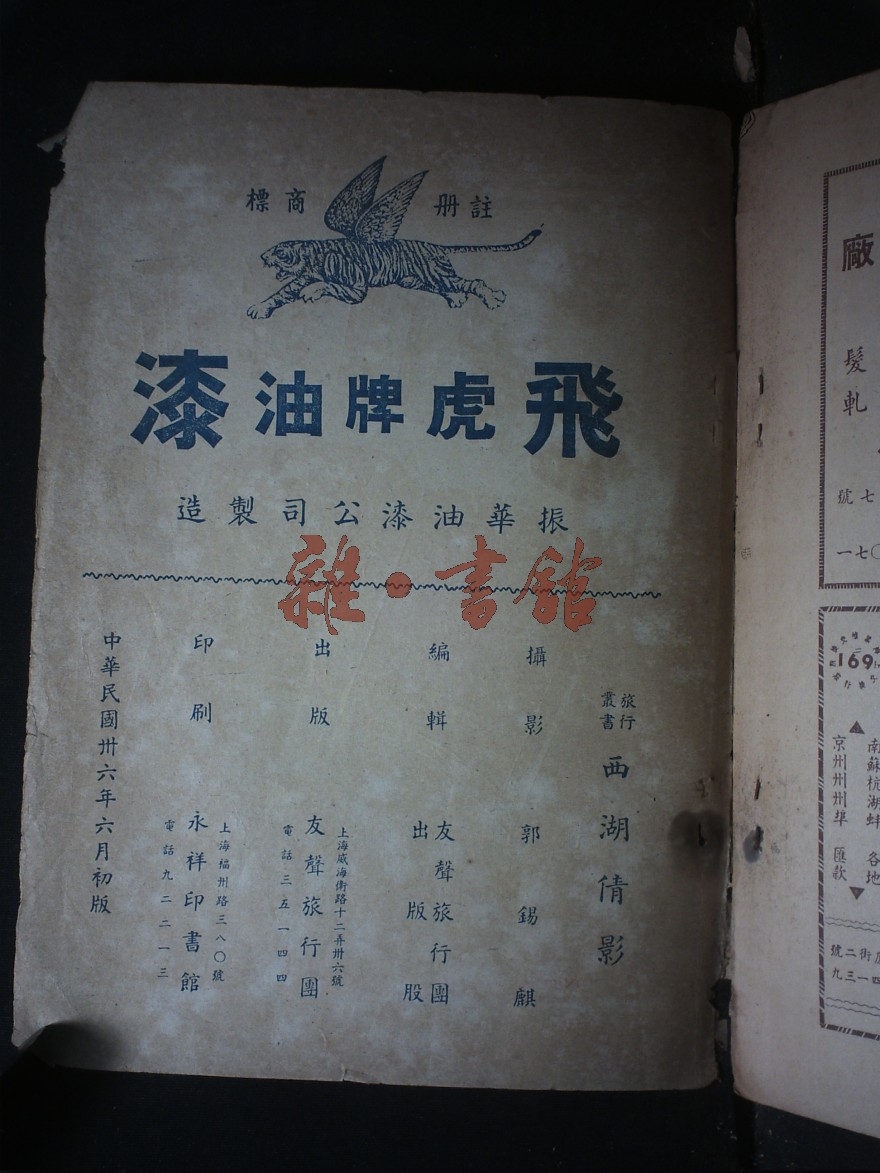 註冊 商標
飛虎牌油漆
振華油漆公司製造
雜·書館
旅行叢書 西湖倩影
攝影 郭錫麒
編輯 友聲旅行團出版股
出版 友聲旅行團
上海威海衛路十二弄卅六號
電話三五一四四
印刷 永祥印書館
上海福州路三八〇號
電話九二二一三
中華民國卅六年六月初版
廠
髮
軋
七號
〇七一
169
南
蘇
杭
湖
蚌
各
地
京
州
州
州
埠
匯
款
街二號
四一三九